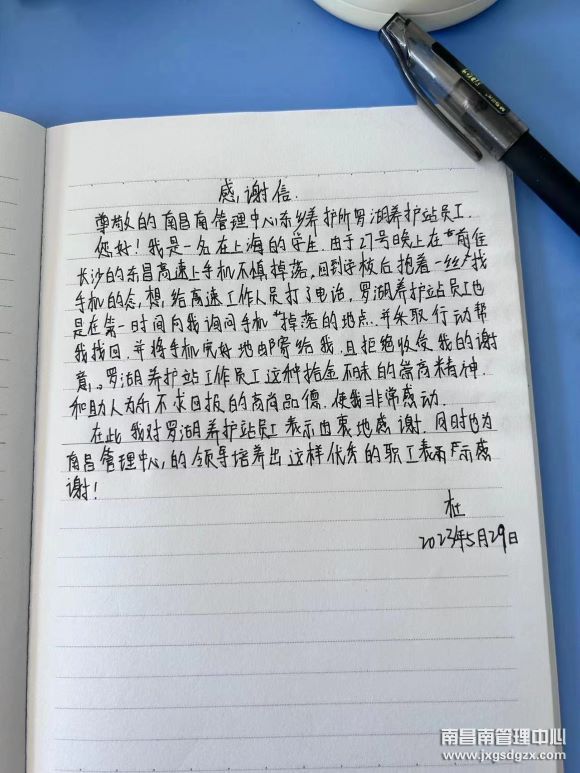 感谢信
尊敬的南昌南管理中心东乡养护所罗湖养护站员工.
您好！我是一名在上海的学生.由于27号晚上在"前往
长沙的东昌高速上手机不慎掉落,回到学校后抱着一丝"找
手机的念想,给高速工作人员打了电话,罗湖养护站员工也
是在第一时间向我询问手机"掉落的地点.并采取行动帮
我找回.并将手机完好地邮寄给我,且拒绝收受我的谢
意,罗湖养护站工作员工这种拾金不昧的崇高精神.
和助人为乐不求回报的高尚品德.使我非常感动.
在此我对罗湖养护站员工表示由衷地感谢.同时也为
南昌管理中心,的领导培养出这样优秀的职工表示感
谢！
杜
2023年5月29日
南昌南管理中心
www.jxgsdgzx.com